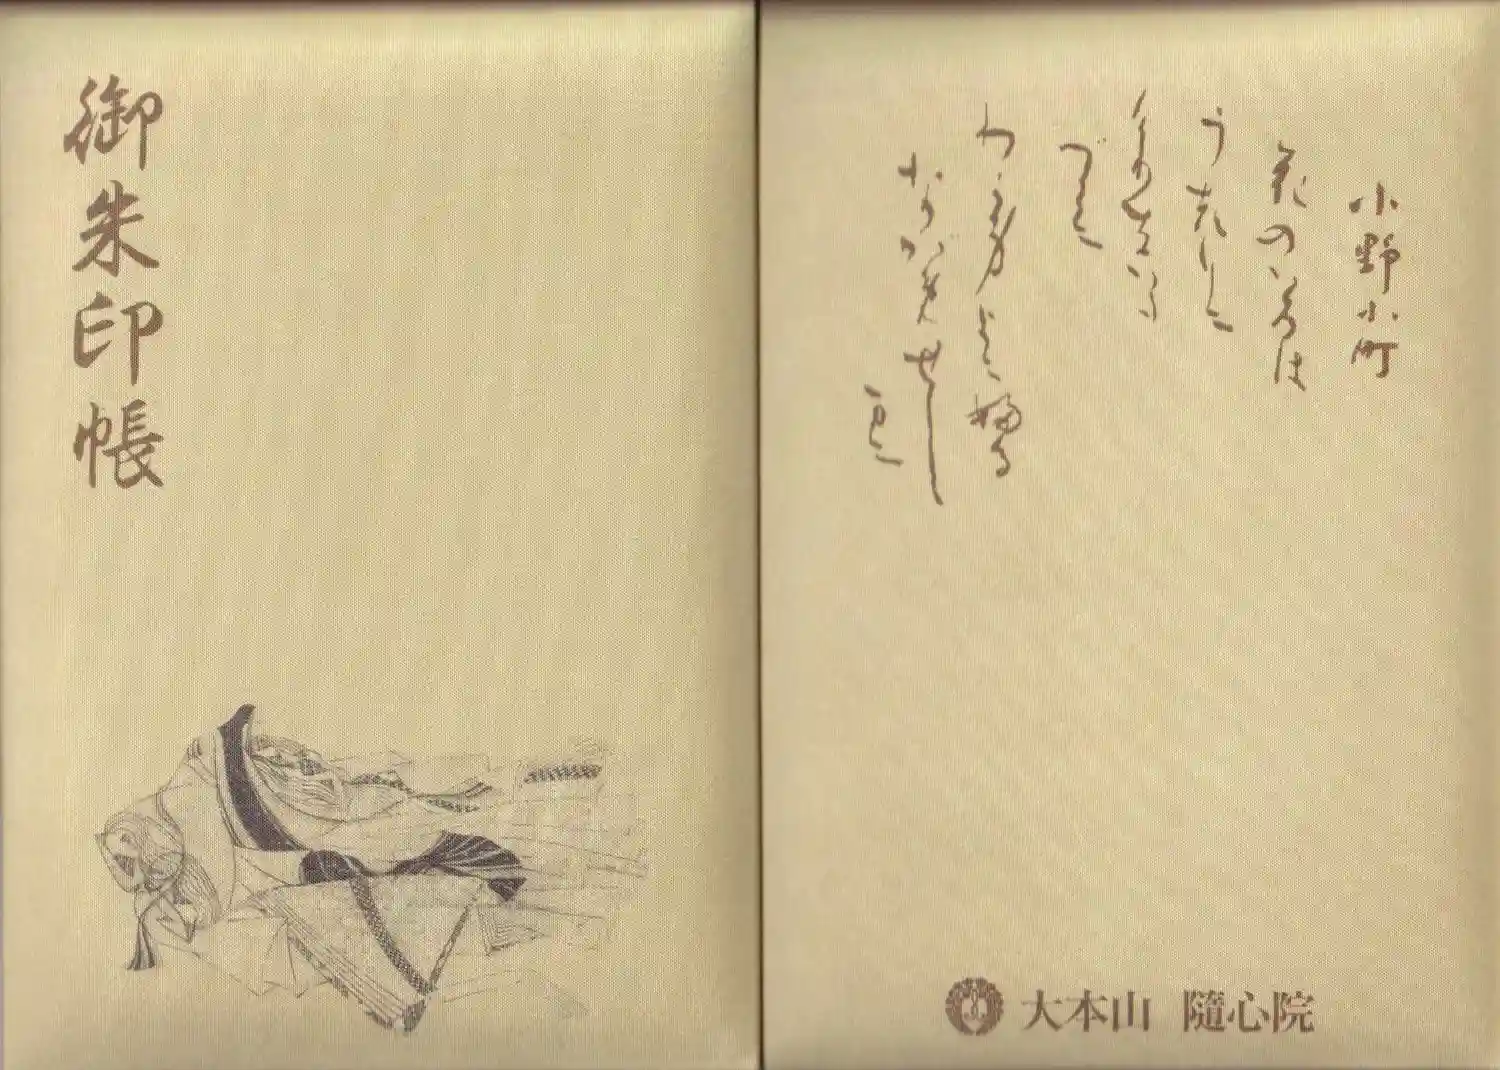 御朱印帳
小野小町
花のいろは
うつりに
けりないた
づらに
わか身よに婦る
なかめせし
まに
大本山 隨心院